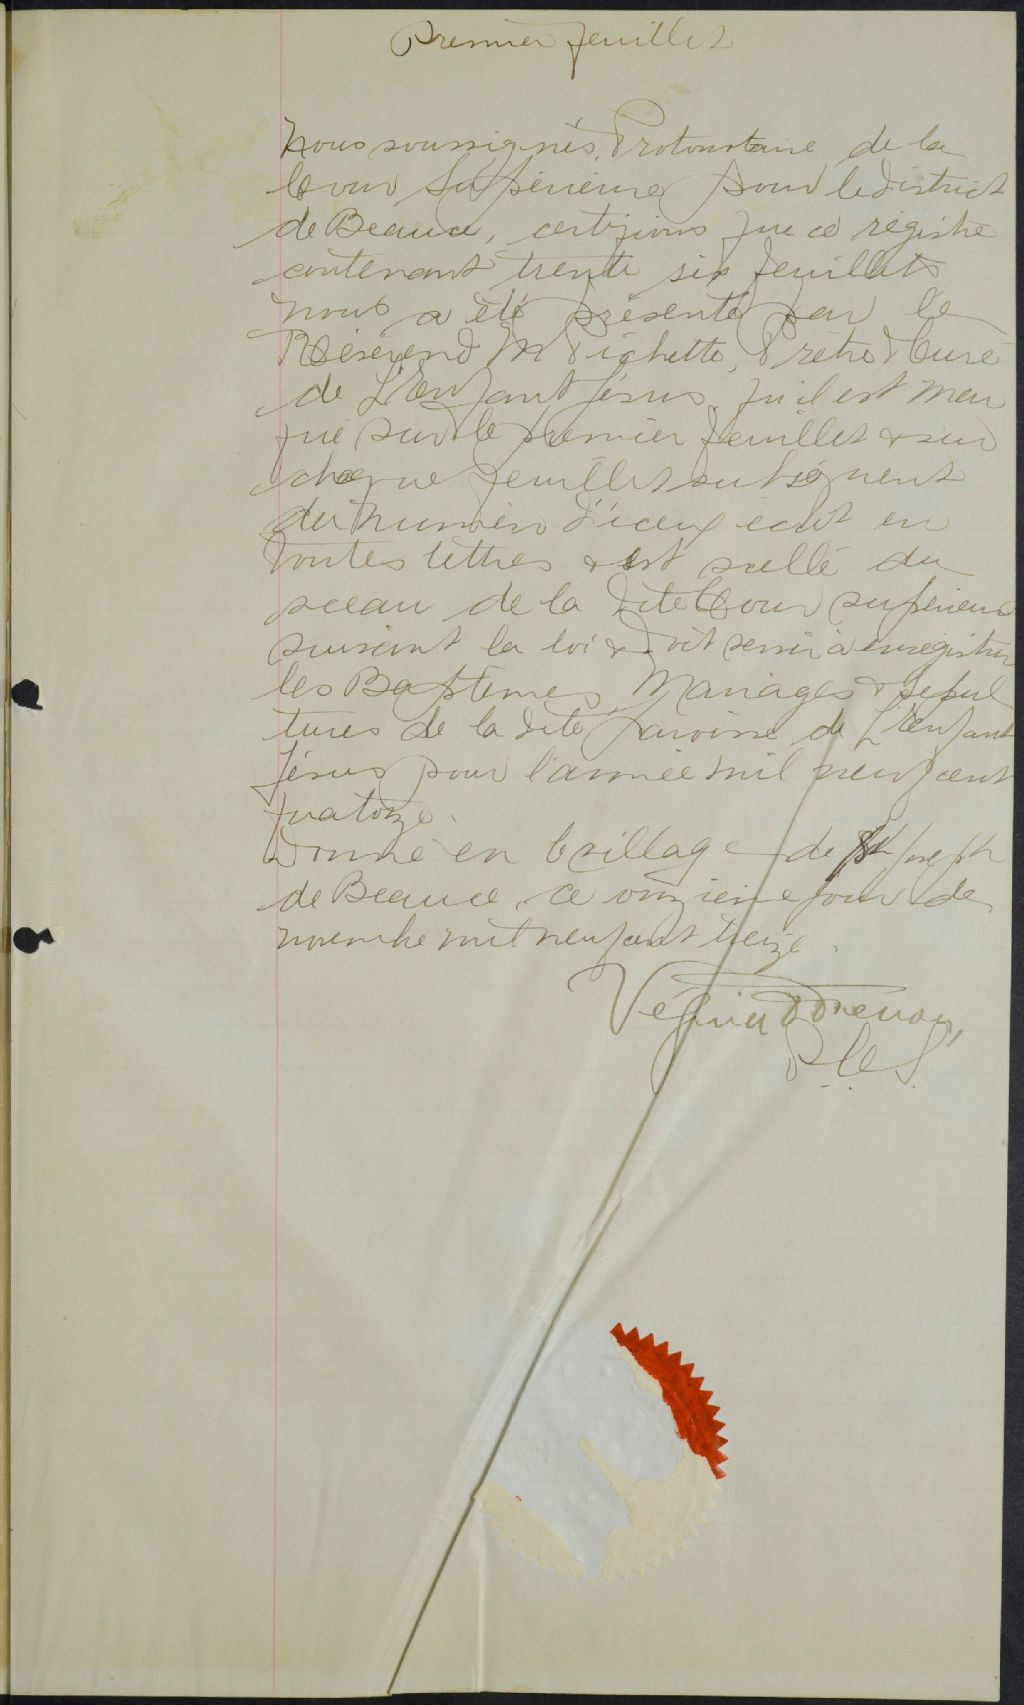 Premier feuillet
Nous soussignés, Protonotaire de la
Cour Supérieure pour le district
de Beauce, certifions que ce régistre
contenant trente six feuillets
nous a été présenté par le
Révérend M Pichette, Prêtre & Curé
de L'Enfant Jésus, qu'il est mar
qué sur le premier feuillet & sur
chaque feuillet subséquent
du numéro d'iceux écrit en
toutes lettres & est scellé du
sceau de la dite Cour supérieure
suivant la loi & doit servir à enrégistrer
les Baptêmes, Mariages & Sépul
tures de la dite paroisse de L'Enfant
Jésus pour l'année mil neuf cent
quatorze.
Donné en le village de St Joseph
de Beauce, ce onzième jour de
novembre mil neuf cent treize.
Vézina &
P.C.S.